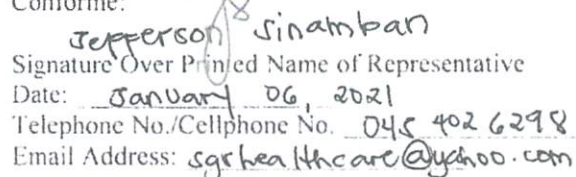 Conforme:
Jefferson Sinamban
Signature Over Printed Name of Representative
Date: January 06, 2021
Telephone No./Cellphone No. 045 402 6298
Email Address: sgrhealthcare@yahoo.com